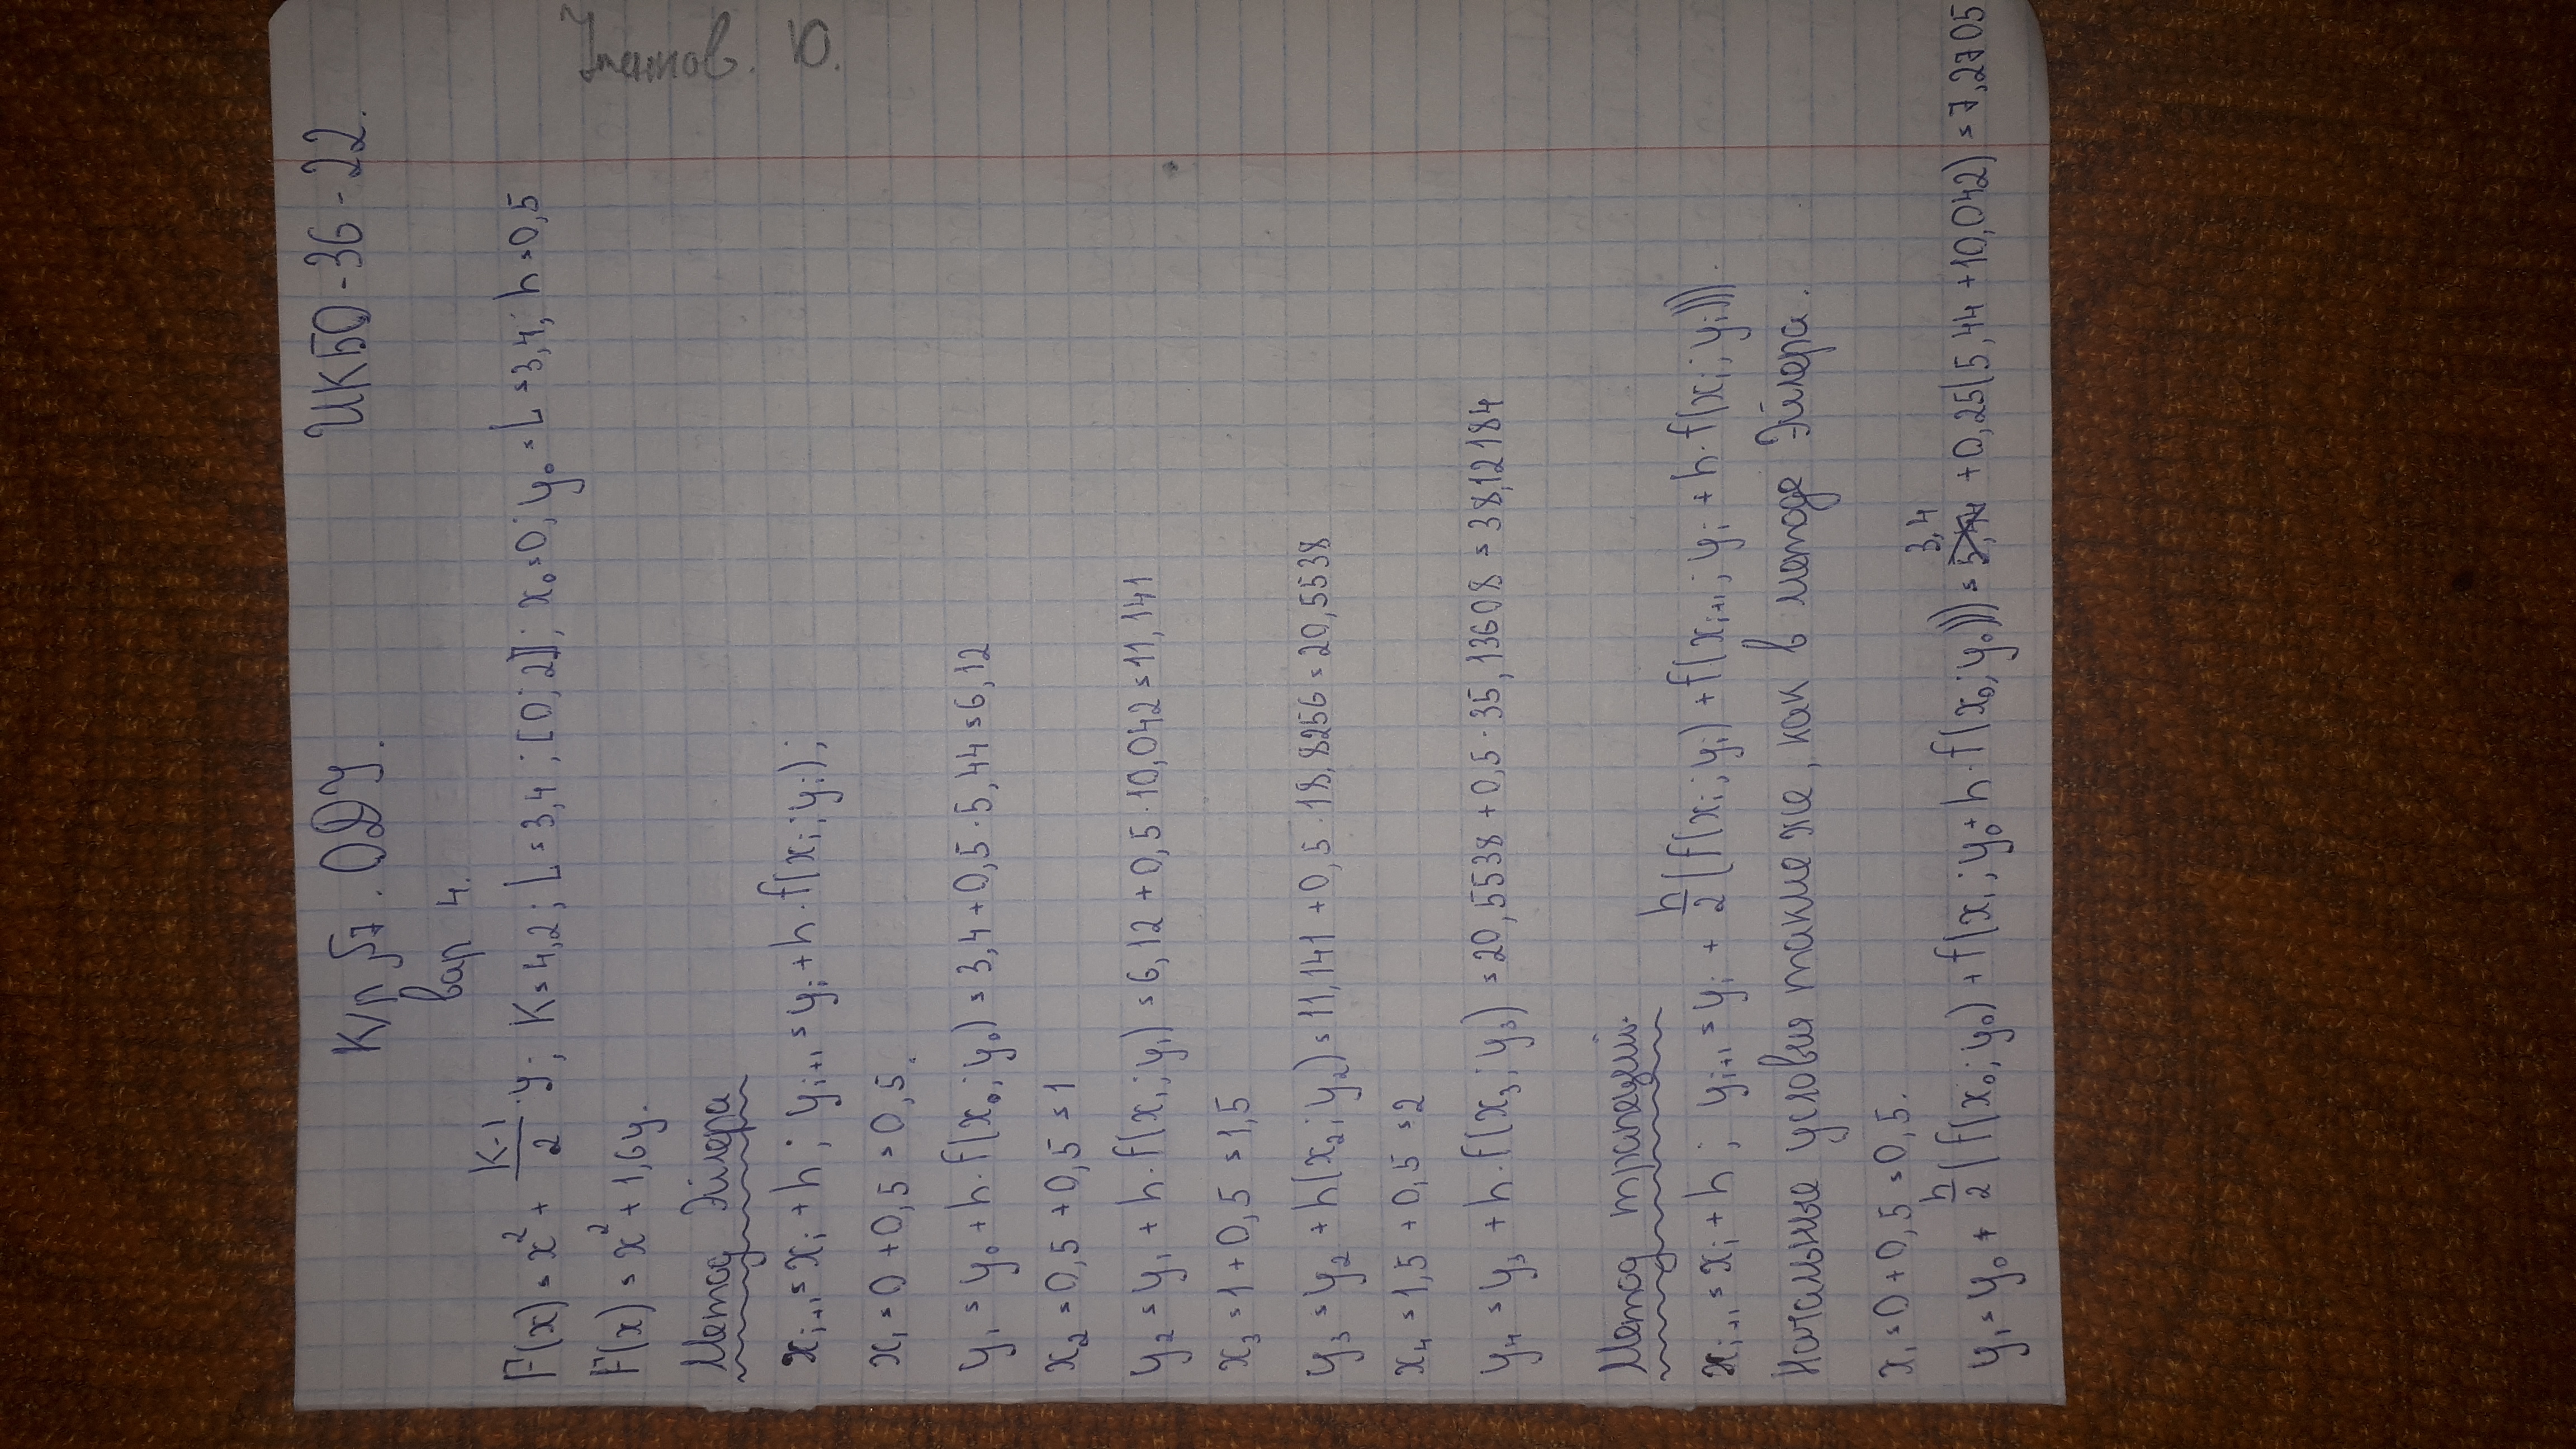 К/р №7. ОДУ.
ИКБО-36-22.
вар 4.
F(x) = x² + (K-1)/2 · y; K = 4,2; L = 3,4; [0; 2]; x₀ = 0; y₀ = L = 3,4; h = 0,5
F(x) = x² + 1,6y.
Метод Эйлера
xᵢ₊₁ = xᵢ + h; yᵢ₊₁ = yᵢ + h · f(xᵢ; yᵢ);
x₁ = 0 + 0,5 = 0,5.
y₁ = y₀ + h · f(x₀; y₀) = 3,4 + 0,5 · 5,44 = 6,12
x₂ = 0,5 + 0,5 = 1
y₂ = y₁ + h · f(x₁; y₁) = 6,12 + 0,5 · 10,042 = 11,141
x₃ = 1 + 0,5 = 1,5
y₃ = y₂ + h(x₂; y₂) = 11,141 + 0,5 · 18,8256 = 20,5538
x₄ = 1,5 + 0,5 = 2
y₄ = y₃ + h · f(x₃; y₃) = 20,5538 + 0,5 · 35,13608 = 38,12184
Метод трапеций.
xᵢ₊₁ = xᵢ + h; yᵢ₊₁ = yᵢ + h/2 (f(xᵢ; yᵢ) + f(xᵢ₊₁; yᵢ + h · f(xᵢ; yᵢ))).
Начальные условия такие же, как в методе Эйлера.
x₁ = 0 + 0,5 = 0,5.
y₁ = y₀ + h/2 (f(x₀; y₀) + f(x₁; y₀ + h · f(x₀; y₀))) = 3,4 + 0,25(5,44 + 10,042) = 7,2705
Ю.